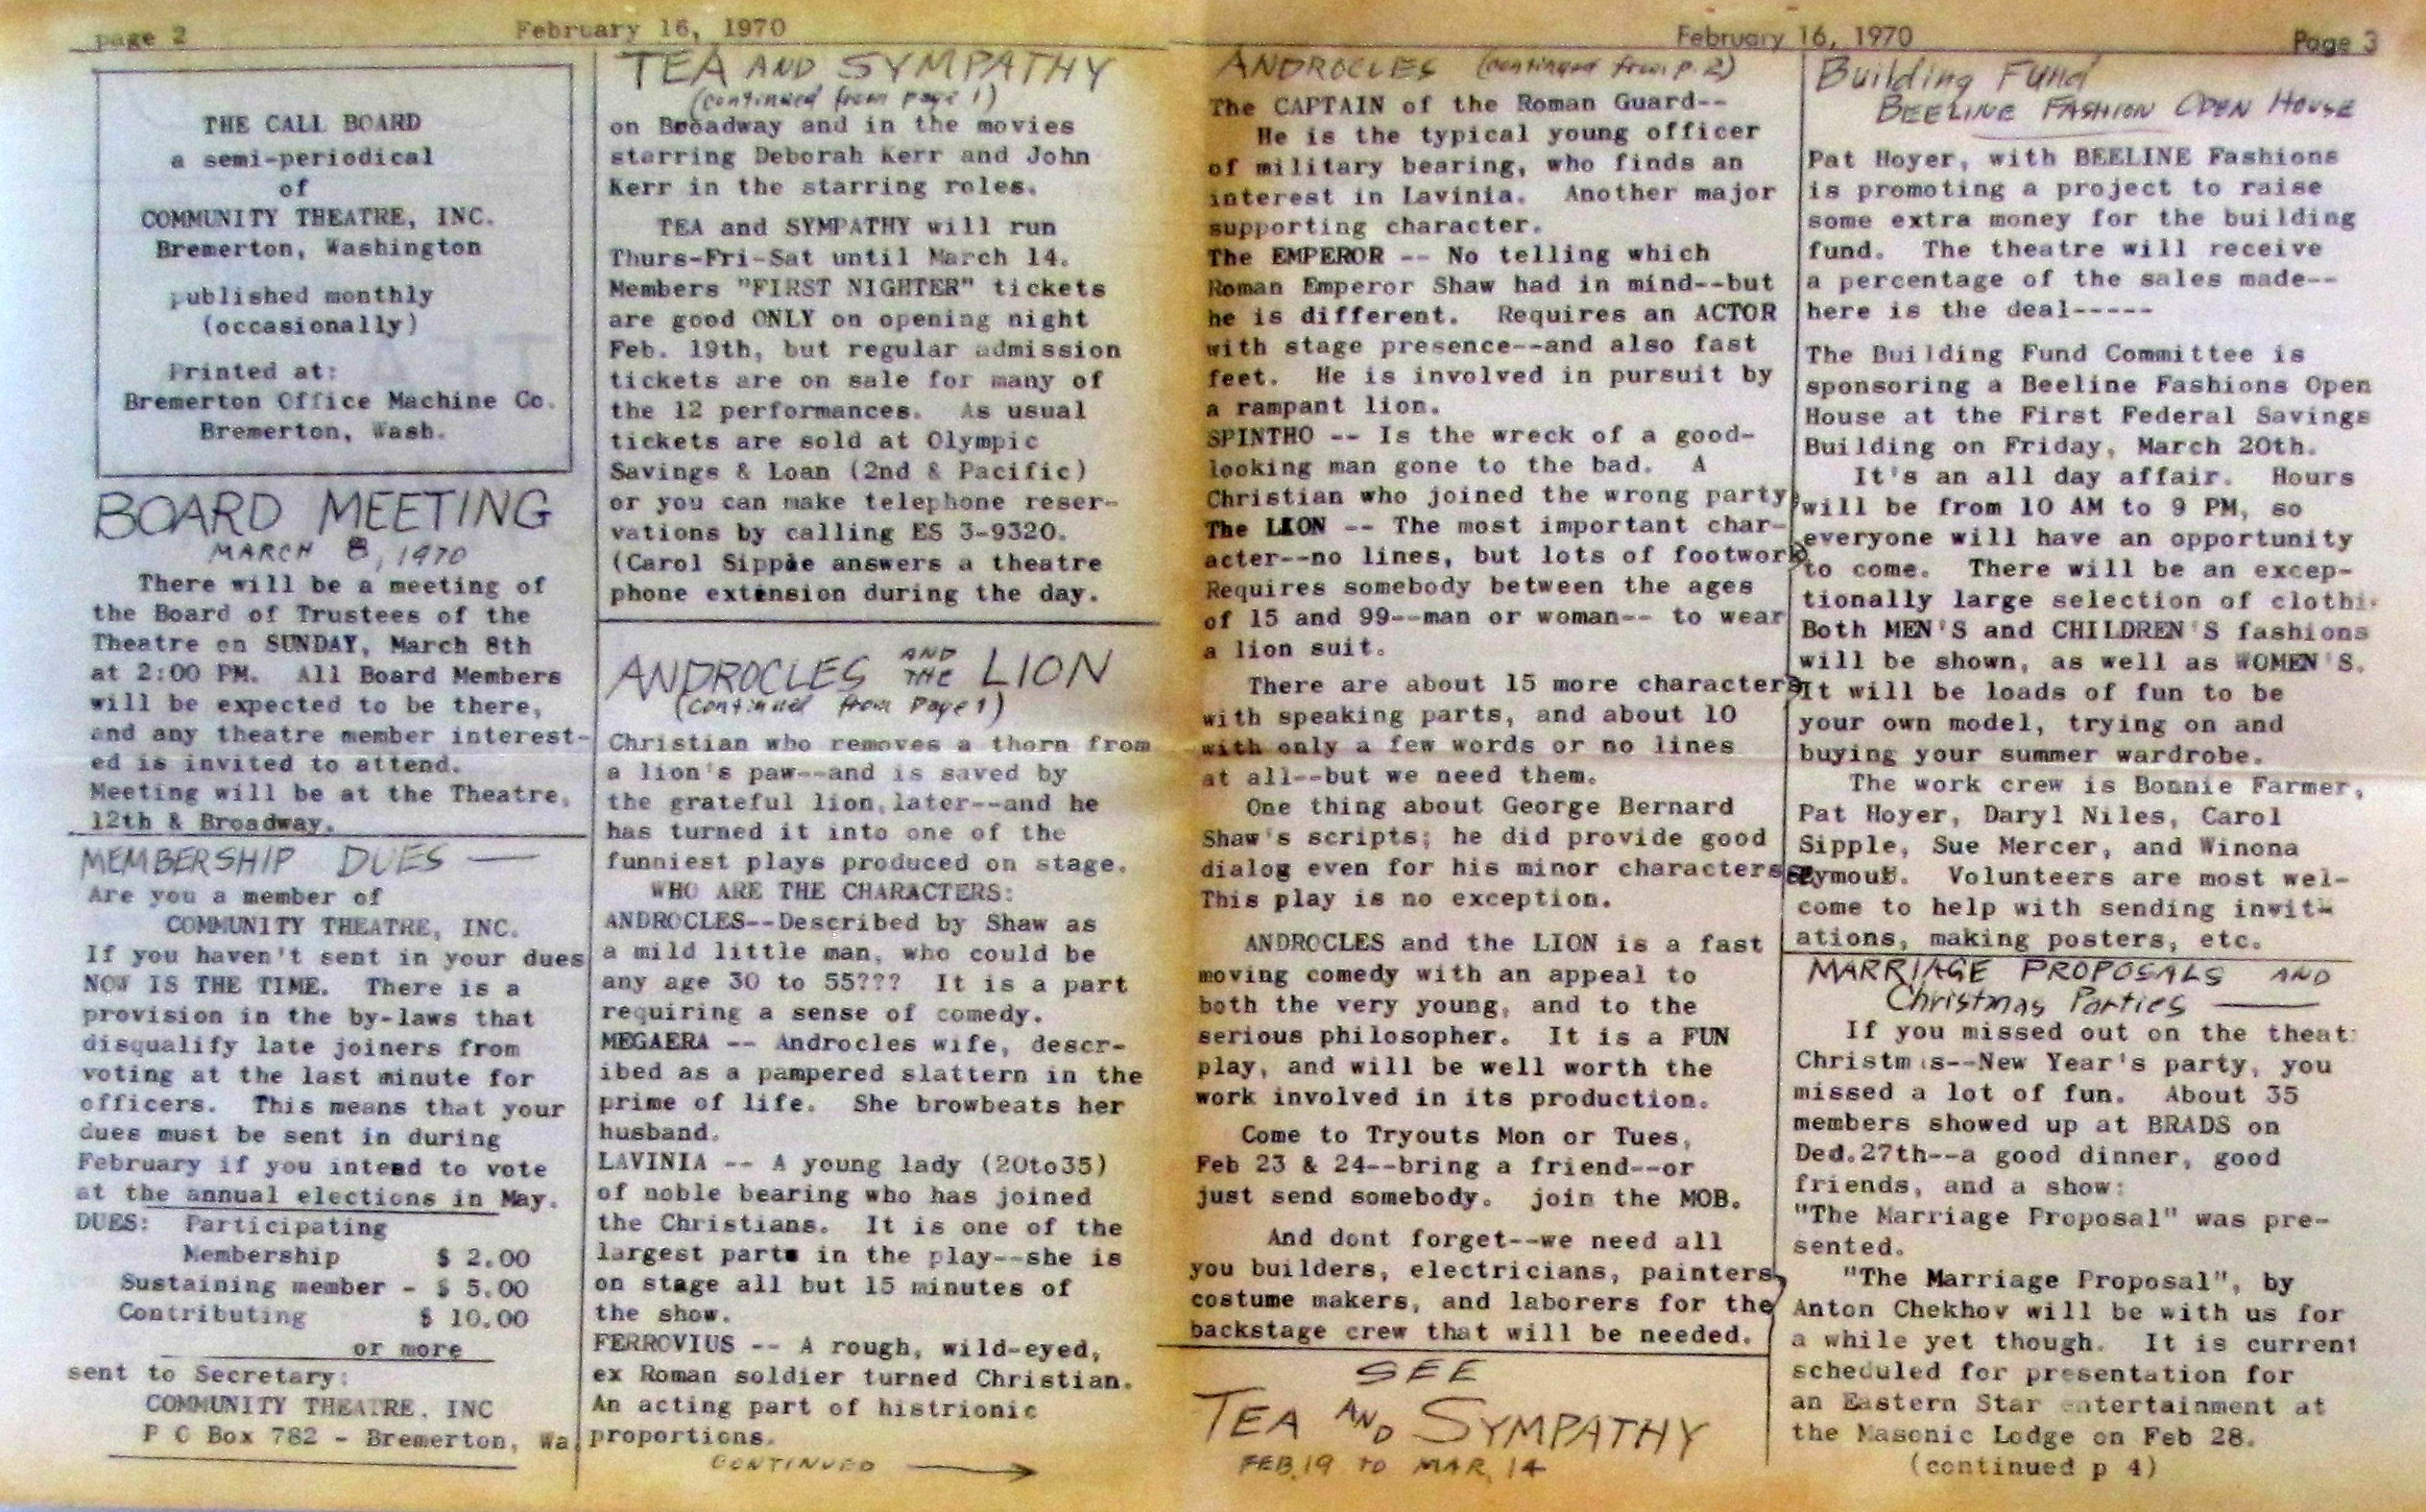 page 2
February 16, 1970
THE CALL BOARD
a semi-periodical
of
COMMUNITY THEATRE, INC.
Bremerton, Washington
published monthly
(occasionally)
Printed at:
Bremerton Office Machine Co.
Bremerton, Wash.
BOARD MEETING
MARCH 8, 1970
There will be a meeting of
the Board of Trustees of the
Theatre on SUNDAY, March 8th
at 2:00 PM. All Board Members
will be expected to be there,
and any theatre member interest-
ed is invited to attend.
Meeting will be at the Theatre,
12th & Broadway.
MEMBERSHIP DUES —
Are you a member of
COMMUNITY THEATRE, INC.
If you haven't sent in your dues
NOW IS THE TIME. There is a
provision in the by-laws that
disqualify late joiners from
voting at the last minute for
officers. This means that your
dues must be sent in during
February if you intend to vote
at the annual elections in May.
DUES: Participating
Membership $ 2.00
Sustaining member - $ 5.00
Contributing $ 10.00
or more
sent to Secretary:
COMMUNITY THEATRE, INC
P O Box 782 - Bremerton, Wa
TEA AND SYMPATHY
(continued from page 1)
on Broadway and in the movies
starring Deborah Kerr and John
Kerr in the starring roles.
TEA and SYMPATHY will run
Thurs-Fri-Sat until March 14.
Members "FIRST NIGHTER" tickets
are good ONLY on opening night
Feb. 19th, but regular admission
tickets are on sale for many of
the 12 performances. As usual
tickets are sold at Olympic
Savings & Loan (2nd & Pacific)
or you can make telephone reser-
vations by calling ES 3-9320.
(Carol Sipple answers a theatre
phone extension during the day.
ANDROCLES AND THE LION
(continued from page 1)
Christian who removes a thorn from
a lion's paw--and is saved by
the grateful lion,later--and he
has turned it into one of the
funniest plays produced on stage.
WHO ARE THE CHARACTERS:
ANDROCLES--Described by Shaw as
a mild little man, who could be
any age 30 to 55??? It is a part
requiring a sense of comedy.
MEGAERA -- Androcles wife, descr-
ibed as a pampered slattern in the
prime of life. She browbeats her
husband.
LAVINIA -- A young lady (20to35)
of noble bearing who has joined
the Christians. It is one of the
largest parts in the play--she is
on stage all but 15 minutes of
the show.
FERROVIUS -- A rough, wild-eyed,
ex Roman soldier turned Christian.
An acting part of histrionic
proportions.
CONTINUED
February 16, 1970
Page 3
ANDROCLES (continued from p.2)
The CAPTAIN of the Roman Guard--
He is the typical young officer
of military bearing, who finds an
interest in Lavinia. Another major
supporting character.
The EMPEROR -- No telling which
Roman Emperor Shaw had in mind--but
he is different. Requires an ACTOR
with stage presence--and also fast
feet. He is involved in pursuit by
a rampant lion.
SPINTHO -- Is the wreck of a good-
looking man gone to the bad. A
Christian who joined the wrong party.
The LION -- The most important char-
acter--no lines, but lots of footwork
Requires somebody between the ages
of 15 and 99--man or woman-- to wear
a lion suit.
There are about 15 more characters
with speaking parts, and about 10
with only a few words or no lines
at all--but we need them.
One thing about George Bernard
Shaw's scripts; he did provide good
dialog even for his minor characters
This play is no exception.
ANDROCLES and the LION is a fast
moving comedy with an appeal to
both the very young, and to the
serious philosopher. It is a FUN
play, and will be well worth the
work involved in its production.
Come to Tryouts Mon or Tues,
Feb 23 & 24--bring a friend--or
just send somebody. join the MOB.
And dont forget--we need all
you builders, electricians, painters,
costume makers, and laborers for the
backstage crew that will be needed.
SEE
TEA AND SYMPATHY
FEB. 19 TO MAR. 14
Building Fund
BEELINE FASHION OPEN HOUSE
Pat Hoyer, with BEELINE Fashions
is promoting a project to raise
some extra money for the building
fund. The theatre will receive
a percentage of the sales made--
here is the deal-----
The Building Fund Committee is
sponsoring a Beeline Fashions Open
House at the First Federal Savings
Building on Friday, March 20th.
It's an all day affair. Hours
will be from 10 AM to 9 PM, so
everyone will have an opportunity
to come. There will be an excep-
tionally large selection of clothi
Both MEN'S and CHILDREN'S fashions
will be shown, as well as WOMEN'S.
It will be loads of fun to be
your own model, trying on and
buying your summer wardrobe.
The work crew is Bonnie Farmer,
Pat Hoyer, Daryl Niles, Carol
Sipple, Sue Mercer, and Winona
Volunteers are most wel-
come to help with sending invit-
ations, making posters, etc.
MARRIAGE PROPOSALS AND
Christmas Parties —
If you missed out on the theat
Christmas--New Year's party, you
missed a lot of fun. About 35
members showed up at BRADS on
Ded.27th--a good dinner, good
friends, and a show:
"The Marriage Proposal" was pre-
sented.
"The Marriage Proposal", by
Anton Chekhov will be with us for
a while yet though. It is current
scheduled for presentation for
an Eastern Star entertainment at
the Masonic Lodge on Feb 28.
(continued p 4)